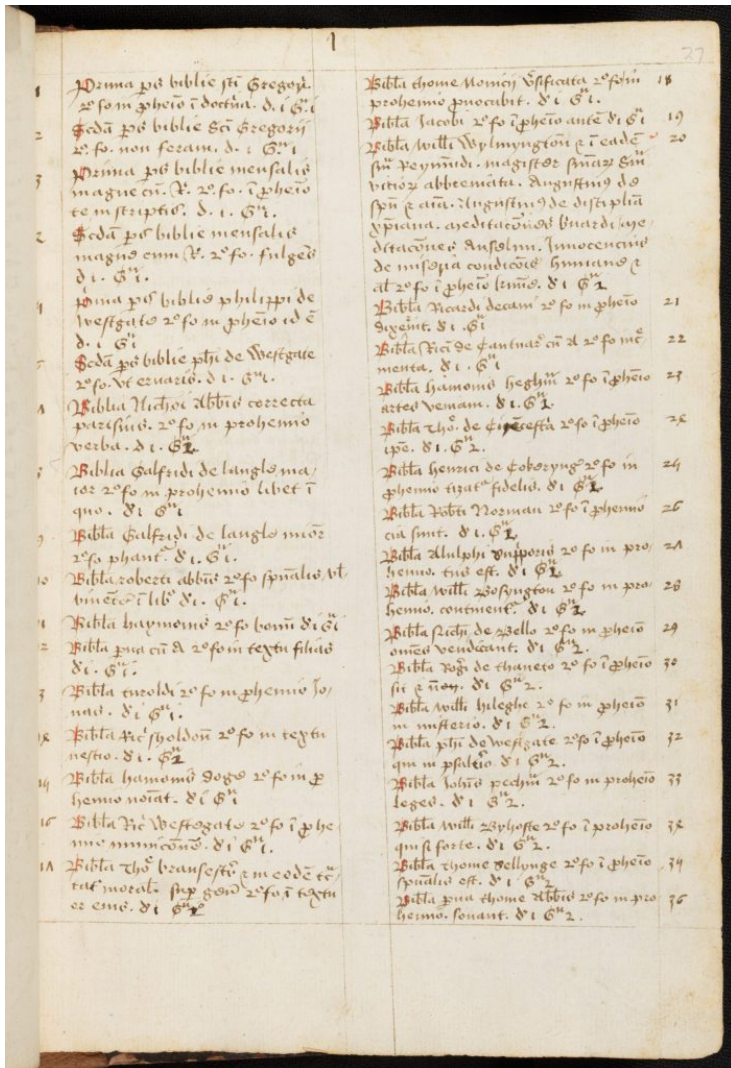 1
27
1 Prima ps biblie sci Gregorii
2o fo in ꝓheio i doctͥna. d. i Gu. i
2 Scda ps biblie Sci Gregorii
2o. fo. non feram. d. i Gu. i
3 Prima ps biblie mensalis
magne cu. R. 2o. fo. i ꝓheio
te in scriptis. d. i. Gu. i.
Scda ps biblie mensalis
magne cum R. 2o fo. fulgens
d i. Gu i.
pima ps biblie philippi de
westgate 2o fo in ꝓheio id e
d. i Gu i
Scda ps biblie phi de westgate
2o fo. vt eruaris. d. i. Gu i.
Biblia Nichoi Abbis correcta
parisius. 2o fo, in prohemio
verba. d i. Gu 1
Biblia Galfridi de langle ma,
ior 2o fo in prohemio libet i
quo. di Gu i
Bibla Galfridi de langle mior
2o fo phant. di. Gu i.
10 Bibla roberti abbis 2o fo spualis, vl
lib di. Gu i.
11 Bibla haymonis 2o fo bonu di Gu i
12 Bibla pua cu A 2o fo in textu filias
di. Gu i.
Bibla turoldi 2o fo in ꝓhemio Jo
nas. di Gu i.
Bibla Ric sholdon 2o fo in textu
nescio. di. Gu 2
Bibla hamonis doge 2o fo in ꝓ
hemio noiat. di Gu i
16 Bibla Ric westegate 2o fo i ꝓhe
mio di. Gu i.
Bibla Tho bransestr ⁊ in eode tc
tat moral. sup gen 2o fo, i textu
er eius. di Gu 2
Bibla thome Monicii Vsificata 2o fo in 18
prohemio ꝓuocabit. di Gu i.
Bibla Jacobi 2o fo i ꝓheio ante di Gu i 19
Bibla willi wylmyngton ⁊ i eade 20
sm Reymundi. magister
vicior abbreuiata. Augustinus de
spu ⁊ aia. Augustinus de disciplia
xpiana. meditacoes Bnardi, me
ditacoes Anselmi. Innocencius
de miseria condicois humane ⁊
al 2o fo i ꝓheio di Gu 2
Bibla Ricardi decani 2o fo in ꝓheio 21
dixerit. di. Gu i
Bibla Rici de Cantuar cu A 2o fo inc 22
menta. di. Gu i
Bibla hamonis heghm 2o fo i ꝓheio 23
artes veniam. di. Gu 1.
Bibla Tho. de Cicestra 2o fo i ꝓheio 24
ipe. di. Gu 2.
Bibla henrici de Cokeryng 2o fo in 25
ꝓhemio fidelis. di Gu 2
Bibla Robti Norman 2o fo i ꝓhemio 26
cia sunt. di. Gu 2
Bibla Alulphi supporis 2o fo in pro 27
hemio. tus est. di Gu 2
Bibla willi Bosyngton 2o fo in pro 28
hemio. continent. di Gu 2
Bibla Nichi de Bello 2o fo in ꝓheio 29
omes vendicant. di. Gu 2.
Bibla Rogi de thaneto 2o fo i ꝓheio 30
sit ⁊ non. di Gu 2.
Bibla willi hileghe 2o fo in ꝓheio 31
in misterio. di Gu 2.
Bibla phi de westgate 2o fo i ꝓheio 32
qui in psaltrio. di Gu 2.
Bibla Johis pechm 2o fo in proheio 33
leges. di Gu 2.
Bibla willi Byholte 2o fo i proheio 34
qui si forte. di Gu 2.
Bibla thome Sellynge 2o fo i ꝓheio 35
spualis est. di Gu 2
Bibla pua thome Abbis 2o fo in pro 36
hemio. sonant. di Gu 2.